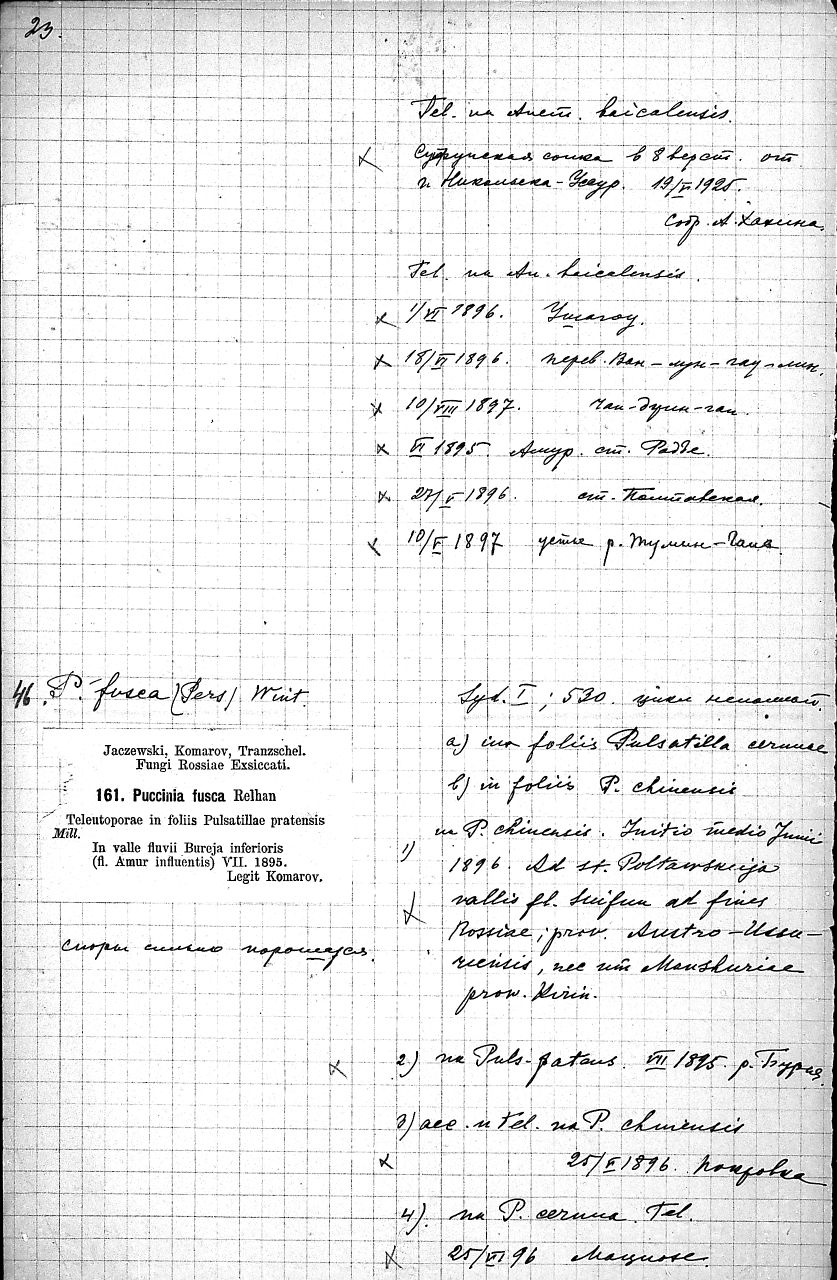 23.
Tel. на Anem. baicalensis.
сопка в 8 верст. от
г. Никольска-Уссур. 19/V 1925.
собр. А. Хахина.
Tel. на An. baicalensis.
1/VI 1896. Ушагоу.
18/VI 1896. перев. Ван-лун-гоу-лин.
10/VIII 1897.
VI 1895. Амур. ст. Радде.
27/V 1896. ст. Полтавская.
10/V 1897 устье р. Тумин-Гана
46. P. fusca (Pers) Wint.
Jaczewski, Komarov, Tranzschel.
Fungi Rossiae Exsiccati.
161. Puccinia fusca Relhan
Teleutoporae in foliis Pulsatillae pratensis
Mill.
In valle fluvii Bureja inferioris
(fl. Amur influentis) VII. 1895.
Legit Komarov.
споры сильно порошатся.
Syd. I; 530. цикл неполный.
a) in foliis Pulsatilla cernuae
b) in foliis P. chinensis
1) на P. chinensis. Initio medio Junii
1896. Ad st. Poltawskaja
vallis fl. Suifun ad fines
Rossiae, prov. Austro-Ussu-
riensis, nec um Manshuriae
prov. Kirin.
2) на Puls. patens. VII 1895. р. Бурея.
3) aec. и Tel. на P. chinensis
25/V 1896. Покровка
4). на P. cernua. Tel.
25/VI 96